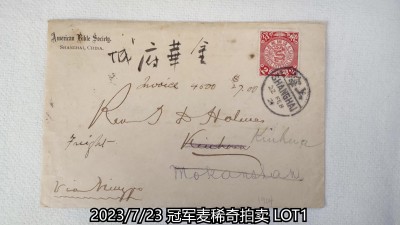 American Bible Society.
SHANGHAI, CHINA.
金華府城
Invoice
SHANGHAI
Rev T D Holmes
Freight
Kinhwa
Via Ningpo
Mokanshan
2023/7/23 冠军麦稀奇拍卖 LOT1